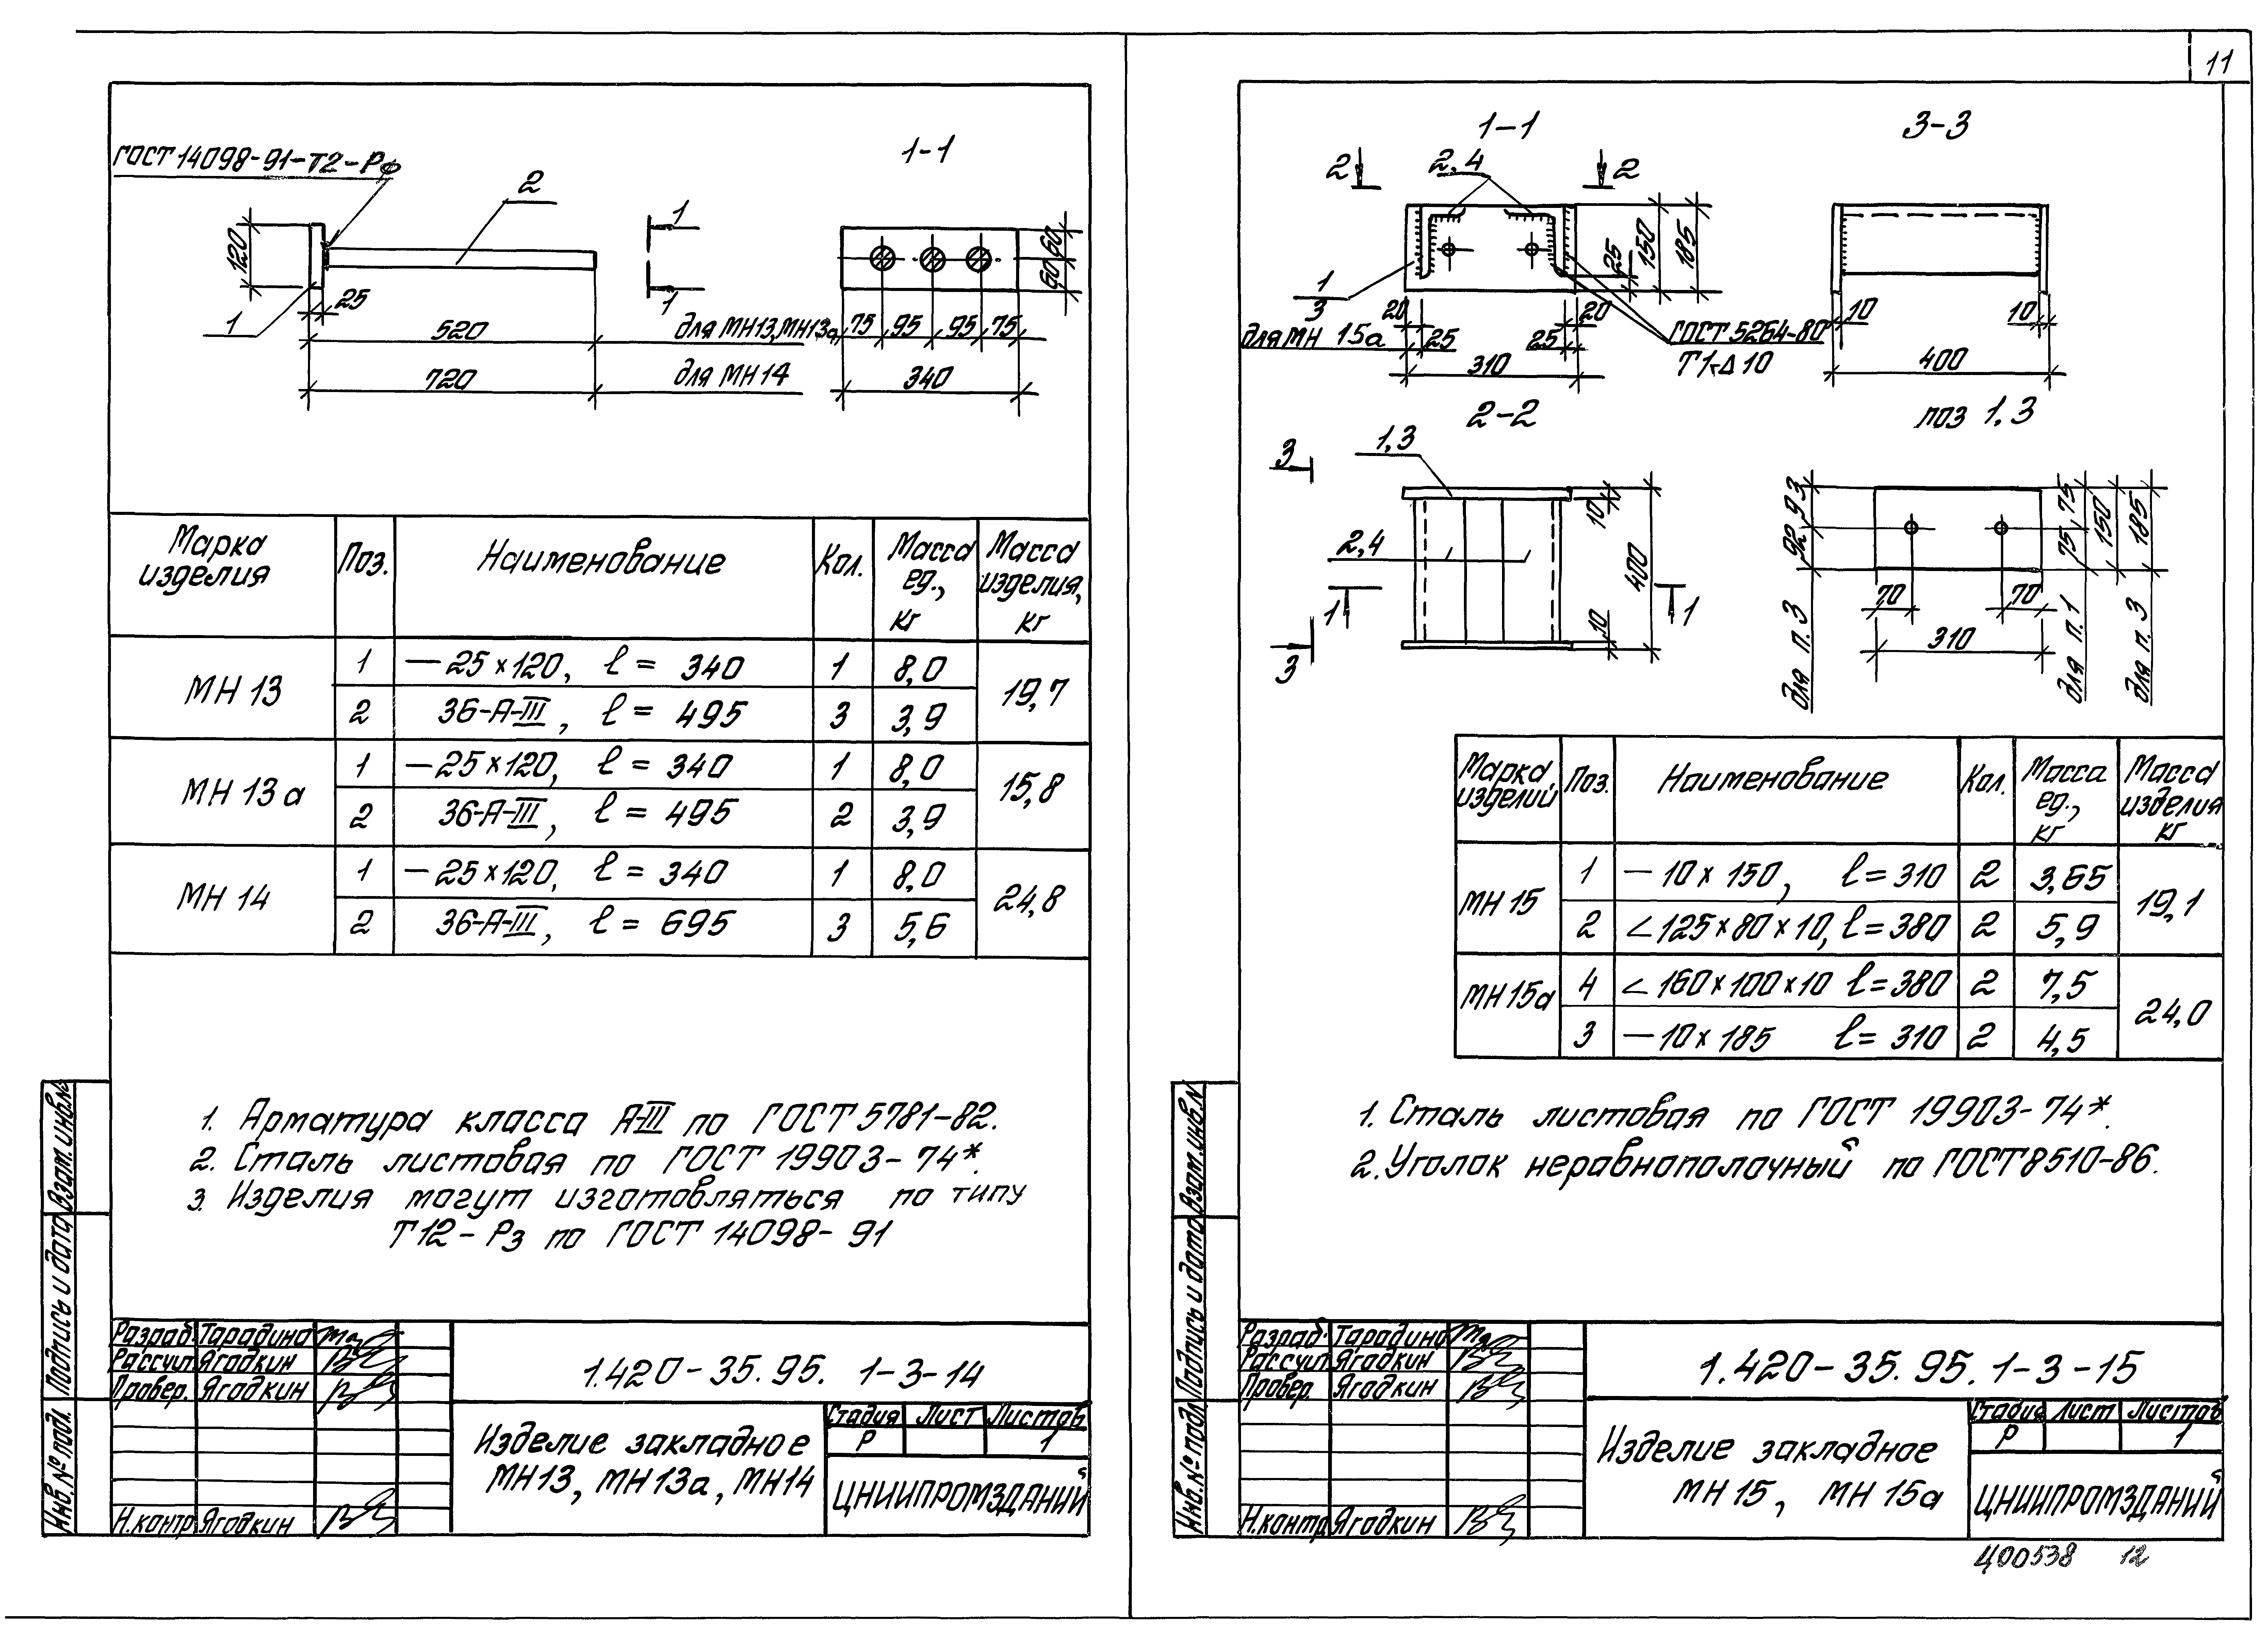 11
ГОСТ 14098-91-Т2-Рф
2
1
120
25
1
520
для МН13, МН13а
720
для МН14
1
1
1-1
60
60
75 95 95 75
340
Марка изделия
Поз.
Наименование
Кол.
Масса ед., кг
Масса изделия, кг
МН 13
1 — 25×120, ℓ = 340 1 8,0
19,7
2 36-А-III, ℓ = 495 3 3,9
МН 13а
1 — 25×120, ℓ = 340 1 8,0
15,8
2 36-А-III, ℓ = 495 2 3,9
МН 14
1 — 25×120, ℓ = 340 1 8,0
24,8
2 36-А-III, ℓ = 695 3 5,6
1. Арматура класса А-III по ГОСТ 5781-82.
2. Сталь листовая по ГОСТ 19903-74*.
3. Изделия могут изготовляться по типу
Т12-Рз по ГОСТ 14098-91
Взам.инв.№
Подпись и дата
Инв.№ подл.
Разраб. Тарадина
Рассчит. Ягодкин
Провер. Ягодкин
Н.контр. Ягодкин
1.420-35.95. 1-3-14
Изделие закладное
МН13, МН13а, МН14
Стадия Лист Листов
Р 1
ЦНИИПРОМЗДАНИЙ
1-1
2 2
2,4
1
3
25
150
185
20 20
для МН 15а 25 25
310
ГОСТ 5264-80
Т1-△10
3-3
10 10
400
2-2
3
1,3
2,4
1 1
3
10
400
10
поз 1,3
92 93
для п.3
70 70
310
75 75
150
для п.1
185
для п.3
Марка изделий
Поз.
Наименование
Кол.
Масса ед., кг
Масса изделия кг
МН 15
1 — 10×150, ℓ=310 2 3,65
19,1
2 ∠125×80×10, ℓ=380 2 5,9
МН 15а
4 ∠160×100×10 ℓ=380 2 7,5
24,0
3 — 10×185 ℓ=310 2 4,5
1. Сталь листовая по ГОСТ 19903-74*.
2. Уголок неравнополочный по ГОСТ 8510-86.
Взам.инв.№
Подпись и дата
Инв.№ подл
Разраб. Тарадина
Рассчит. Ягодкин
Провер. Ягодкин
Н.контр. Ягодкин
1.420-35.95. 1-3-15
Изделие закладное
МН 15, МН 15а
Стадия Лист Листов
Р 1
ЦНИИПРОМЗДАНИЙ
Ц00538 12